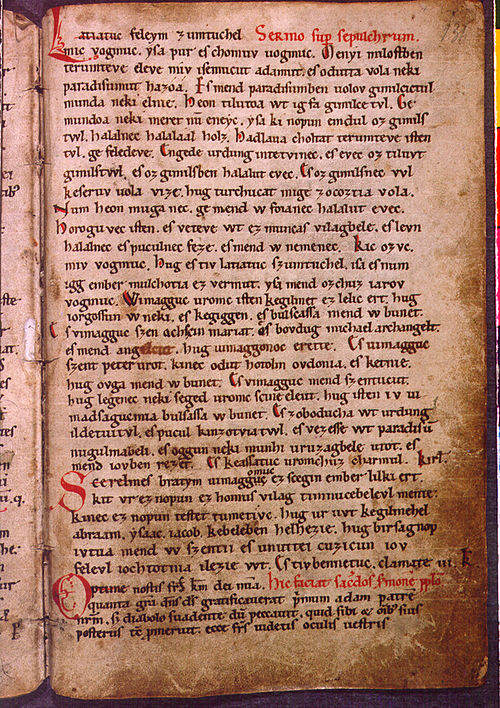 Latiatuc feleym zumtuchel Sermo sup sepulchrum.
mic vogmuc. ysa pur es chomuv uogmuc. Menyi milostben
terumteve eleve miv isemucut adamut. es odutta vola neki
paradisumut hazoa. Es mend paradisumben uolov gimilcictul
munda neki elnie. Heon tilutoa wt ig fa gimilce tvl. Ge
mundoa neki meret nū eneyc. ysa ki nopun emdul oz gimils
twl. halalnec halalaal holz. Hadlaua choltat terumteve isten
tvl. ge feledeve. Engede urdung intetvinec. es evec oz tiluvt
gimilstwl. es oz gimilsben halalut evec. Es oz gimilsnec vvl
keseruv uola vize. hug turchucat mige zocoztia vola.
Num heon muga nec. ge mend w foianec halalut evec.
Horogu vec isten. es veteve wt ez muncas vilagbele. es levn
halalnec es puculnec feze. es mend w nemenec. Kic ozvc.
miv vogmuc. Hug es tiv latiatuc szumtuchel. isa es num
igg ember mulchotia ez vermut. ysa mend ozchuz iarov
vogmuc. Wimagguc uromc isten kegilmet ez lelic ert. hug
iorgossun w neki. es kegiggen. es bulsassa mend w bunet.
Es vimagguc szen achscin mariat. es bovdug michael archangelt.
es mend angelcut. hug uimaggonoc erette. Es uimagguc
szent peter urot. kinec odut hotolm ovdonia. es ketnie.
hug ovga mend w bunet. Es vimagguc mend szentucut.
hug legenec neki seged uromc scine eleut. hug isten iv ui
madsagucmia bulsassa w bunet. Es zoboducha wt urdung
ildetuitvl. es pucul kinzotviatwl. es vezesse wt paradisū
nugulmabeli. es oggun neki munhi uruzagbele utot. es
mend iovben rezet. Es keassatuc uromchuz charmul. Kirł.
Scerelmes bratym uimagguc omuc ez scegin ember lilki ert.
kit vr ez nopun ez homus vilag timnucebelevl mente.
kinec ez nopun testet tumetivc. hug ur uvt kegilmehel
abraam. ysaac. iacob. kebeleben helhezie. hug birsagnop
ivtua mend w szentii es unuttei cuzicun iov
felevl iochtotnia ilezie wt. Es tiv bennetuc. clamate iii. K.
Optime nostis frs km dei mia. Hic faciat sacdos smone pplo
quanta gra dns ds gratificaverat pmum adam patrē
nrm. si diabolo suadente dū peccavit. quid sibi et oib; suis
posteris